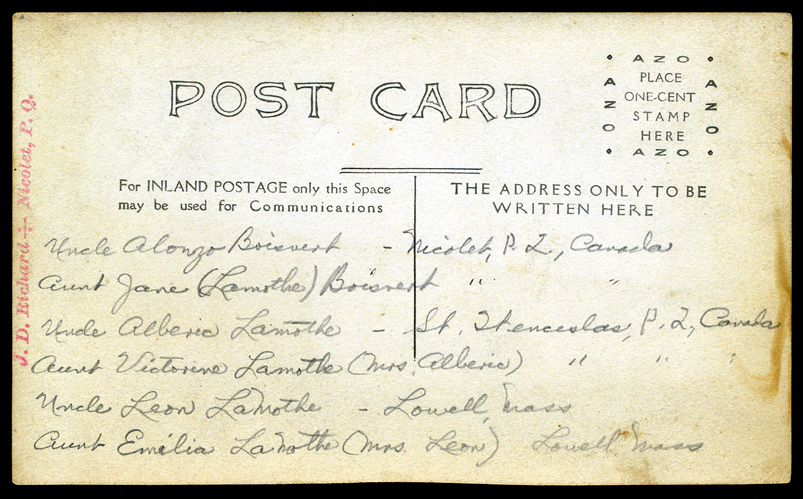 AZO
PLACE
ONE-CENT
STAMP
HERE
AZO
AZO
AZO
POST CARD
J. D. Richard - Nicolet, P. Q.
For INLAND POSTAGE only this Space
may be used for Communications
THE ADDRESS ONLY TO BE
WRITTEN HERE
Uncle Alonzo Boisvert - Nicolet, P. Q., Canada
Aunt Jane (Lamothe) Boisvert " "
Uncle Alberic Lamothe - St. Wenceslas, P. Q., Canada
Aunt Victorine Lamothe (Mrs. Alberic) " " "
Uncle Leon LaMothe - Lowell, Mass
Aunt Emilia LaMothe (Mrs. Leon) Lowell Mass